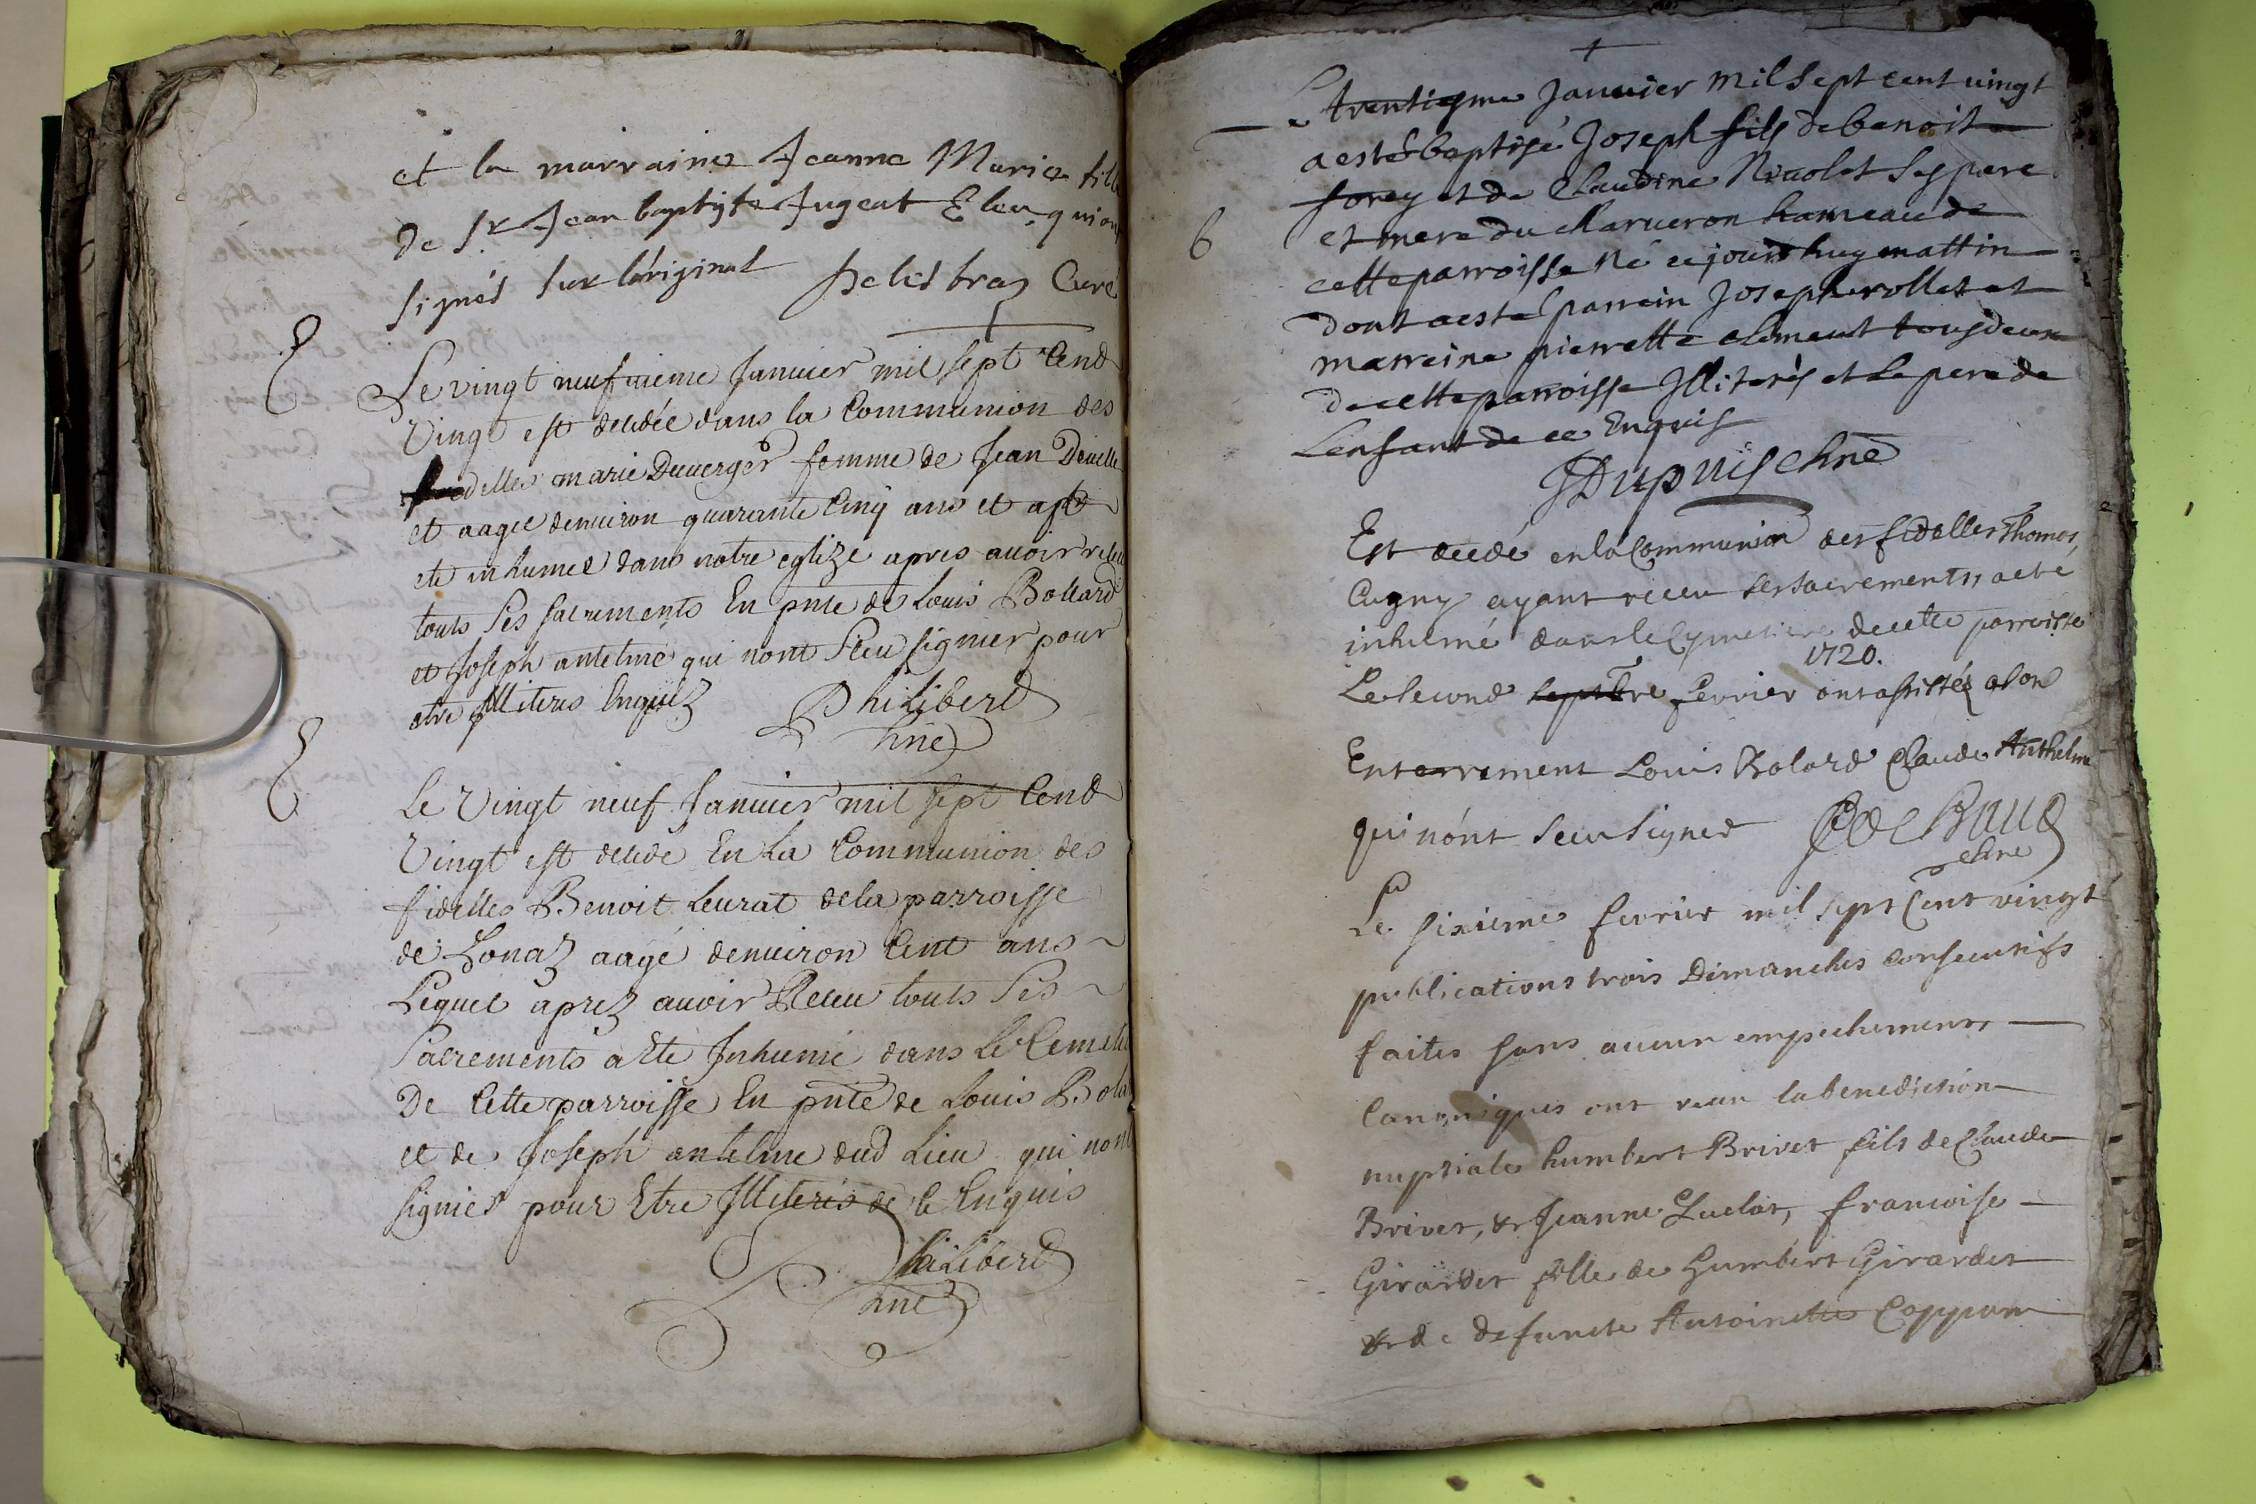 et la marraine Jeanne Marie fille
de Sr Jean baptiste Jugeat Eleu qui ont
signés sur lóriginal Delestraz Curé
Le vingt neufuieme Januier mil sept Cend
Vingt est decedée dans la Communion des
fidelles marie Duuerger femme de Jean
et aagee denuiron quarante Cinq ans et a
ete inhumee dans notre eglize apres auoir receu
touts ses sacrements En pnte de Louis Bollard
et Joseph antelme qui nont sceu signier pour
etre Illiteres Enquis Philiberd
Le Vingt neuf Januier mil sept Cend
Vingt est decede En La Communion des
fidelles Benoit Leurat de la parroisse
de Lonaz aagé denuiron Cent ans
Lequel aprez auoir Receu touts ses
Sacrements a Ete Inhumé dans Le
De Cette parroisse En pnte de Louis
et de Joseph antelme dud Lieu qui nont
signies pour Etre Illiteres de Ce Enquis
Philiberd
Le trentiesme Januier mil sept cent uingt
6
a esté baptisé Joseph fils de benoit
forey et de Claudine Niuolet ses pere
et mere du charueron hameau de
cette parroisse né ce jourdhuy mattin
dont a esté parrein Joseph rollet et
marreine pierrette clement tous deux
de cette parroisse Illiterés et le pere de
Lenfant de ce Enquis
JDupuis chne
Est decedé en la Communion des fidelles Thomas
Cugny ayant receu ses sacrements, a eté
inhumé dans le Cymetiere de cette parroisse
1720.
Le second septbre feurier ont assistés a son
Enterrement Louis Bolard Claude Anthelme
qui nónt sceu signer
chne
Le sixieme feurier mil sept Cent vingt
publications trois Dimanches consecutifs
faites sans aucun empechement
Canoniques ont receu la benediction
nuptiale humbert Brivet fils de Claude
Brivet, & Jeanne Luclat, francoise
Girardet fille de humbert Girardet
& de defuncte Antoinette